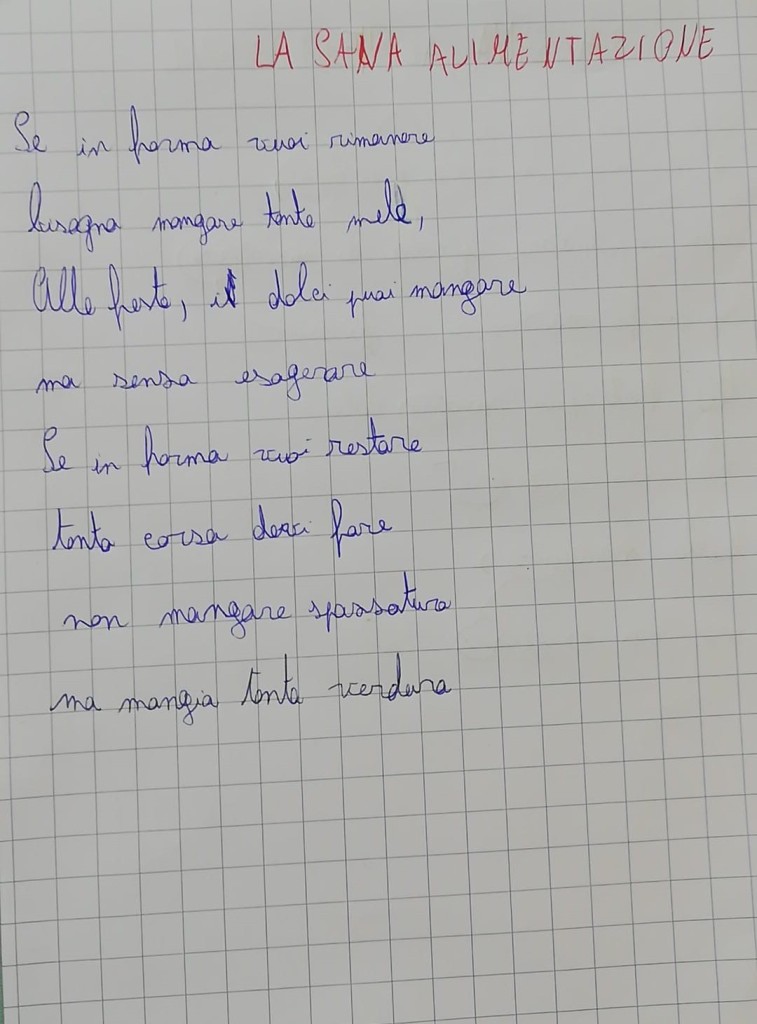 LA SANA ALIMENTAZIONE
Se in forma vuoi rimanere
bisogna mangare tante mele,
Alle feste, i dolci puoi mangare
ma sensa esagerare
Se in forma vuoi restare
tanta corsa devi fare
non mangare spassatura
ma mangia tanta verdura